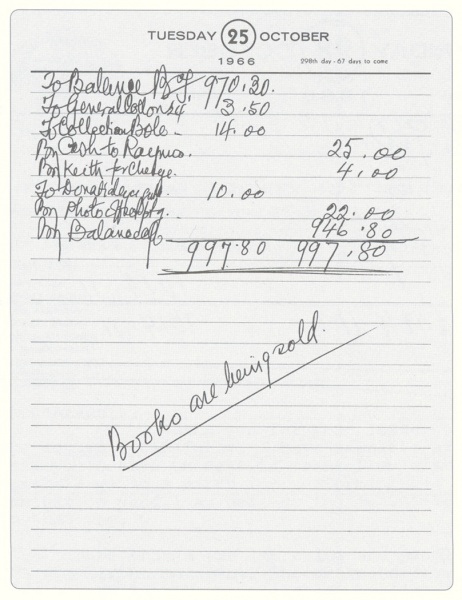 TUESDAY 25 OCTOBER
1966 298th day - 67 days to come
To Balance B/f 970.30.
To General 3.50
To Collection 14.00
By Cash to 25.00
By Keith for 4.00
To 10.00
By Photo 22.00
By Balance c/f 946.80
997.80 997.80
Books are being sold.